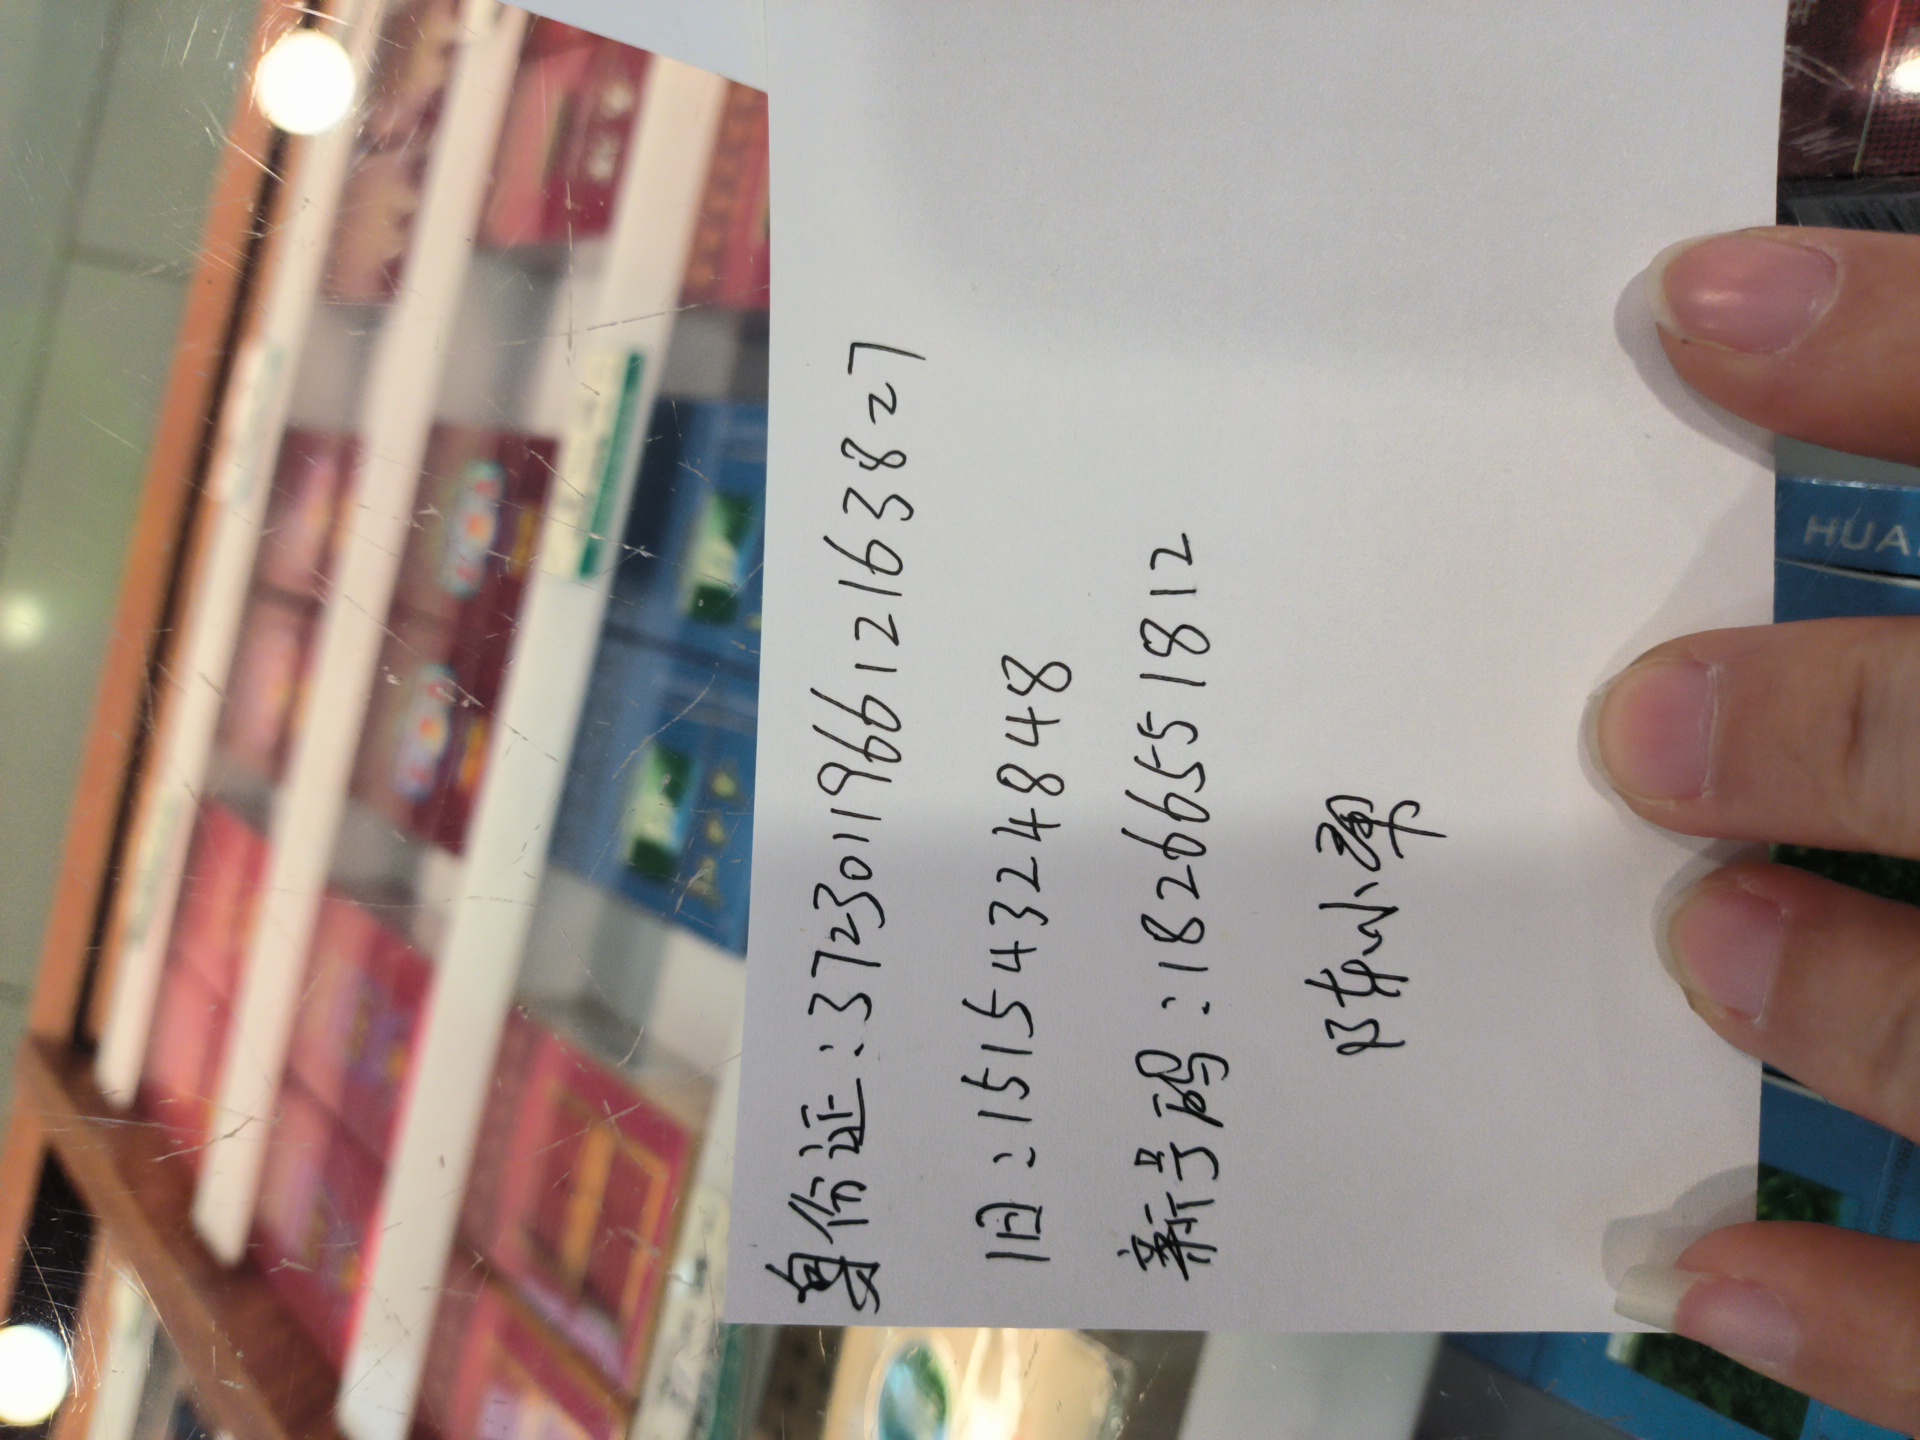 身份证:372301196612163827
旧:15154324848
新号码:18266551812
陈小翠
HUA